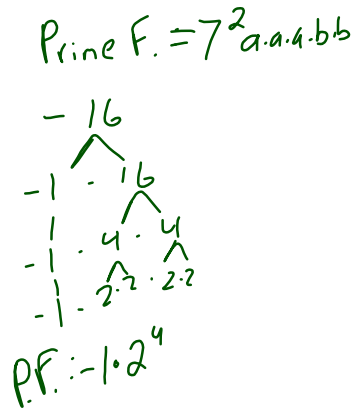 Prine F. = 7² a.a.a.b.b
- 16
-1 · 16
-1 · 4 · 4
-1 · 2·2 · 2·2
P.F. : -1·2⁴